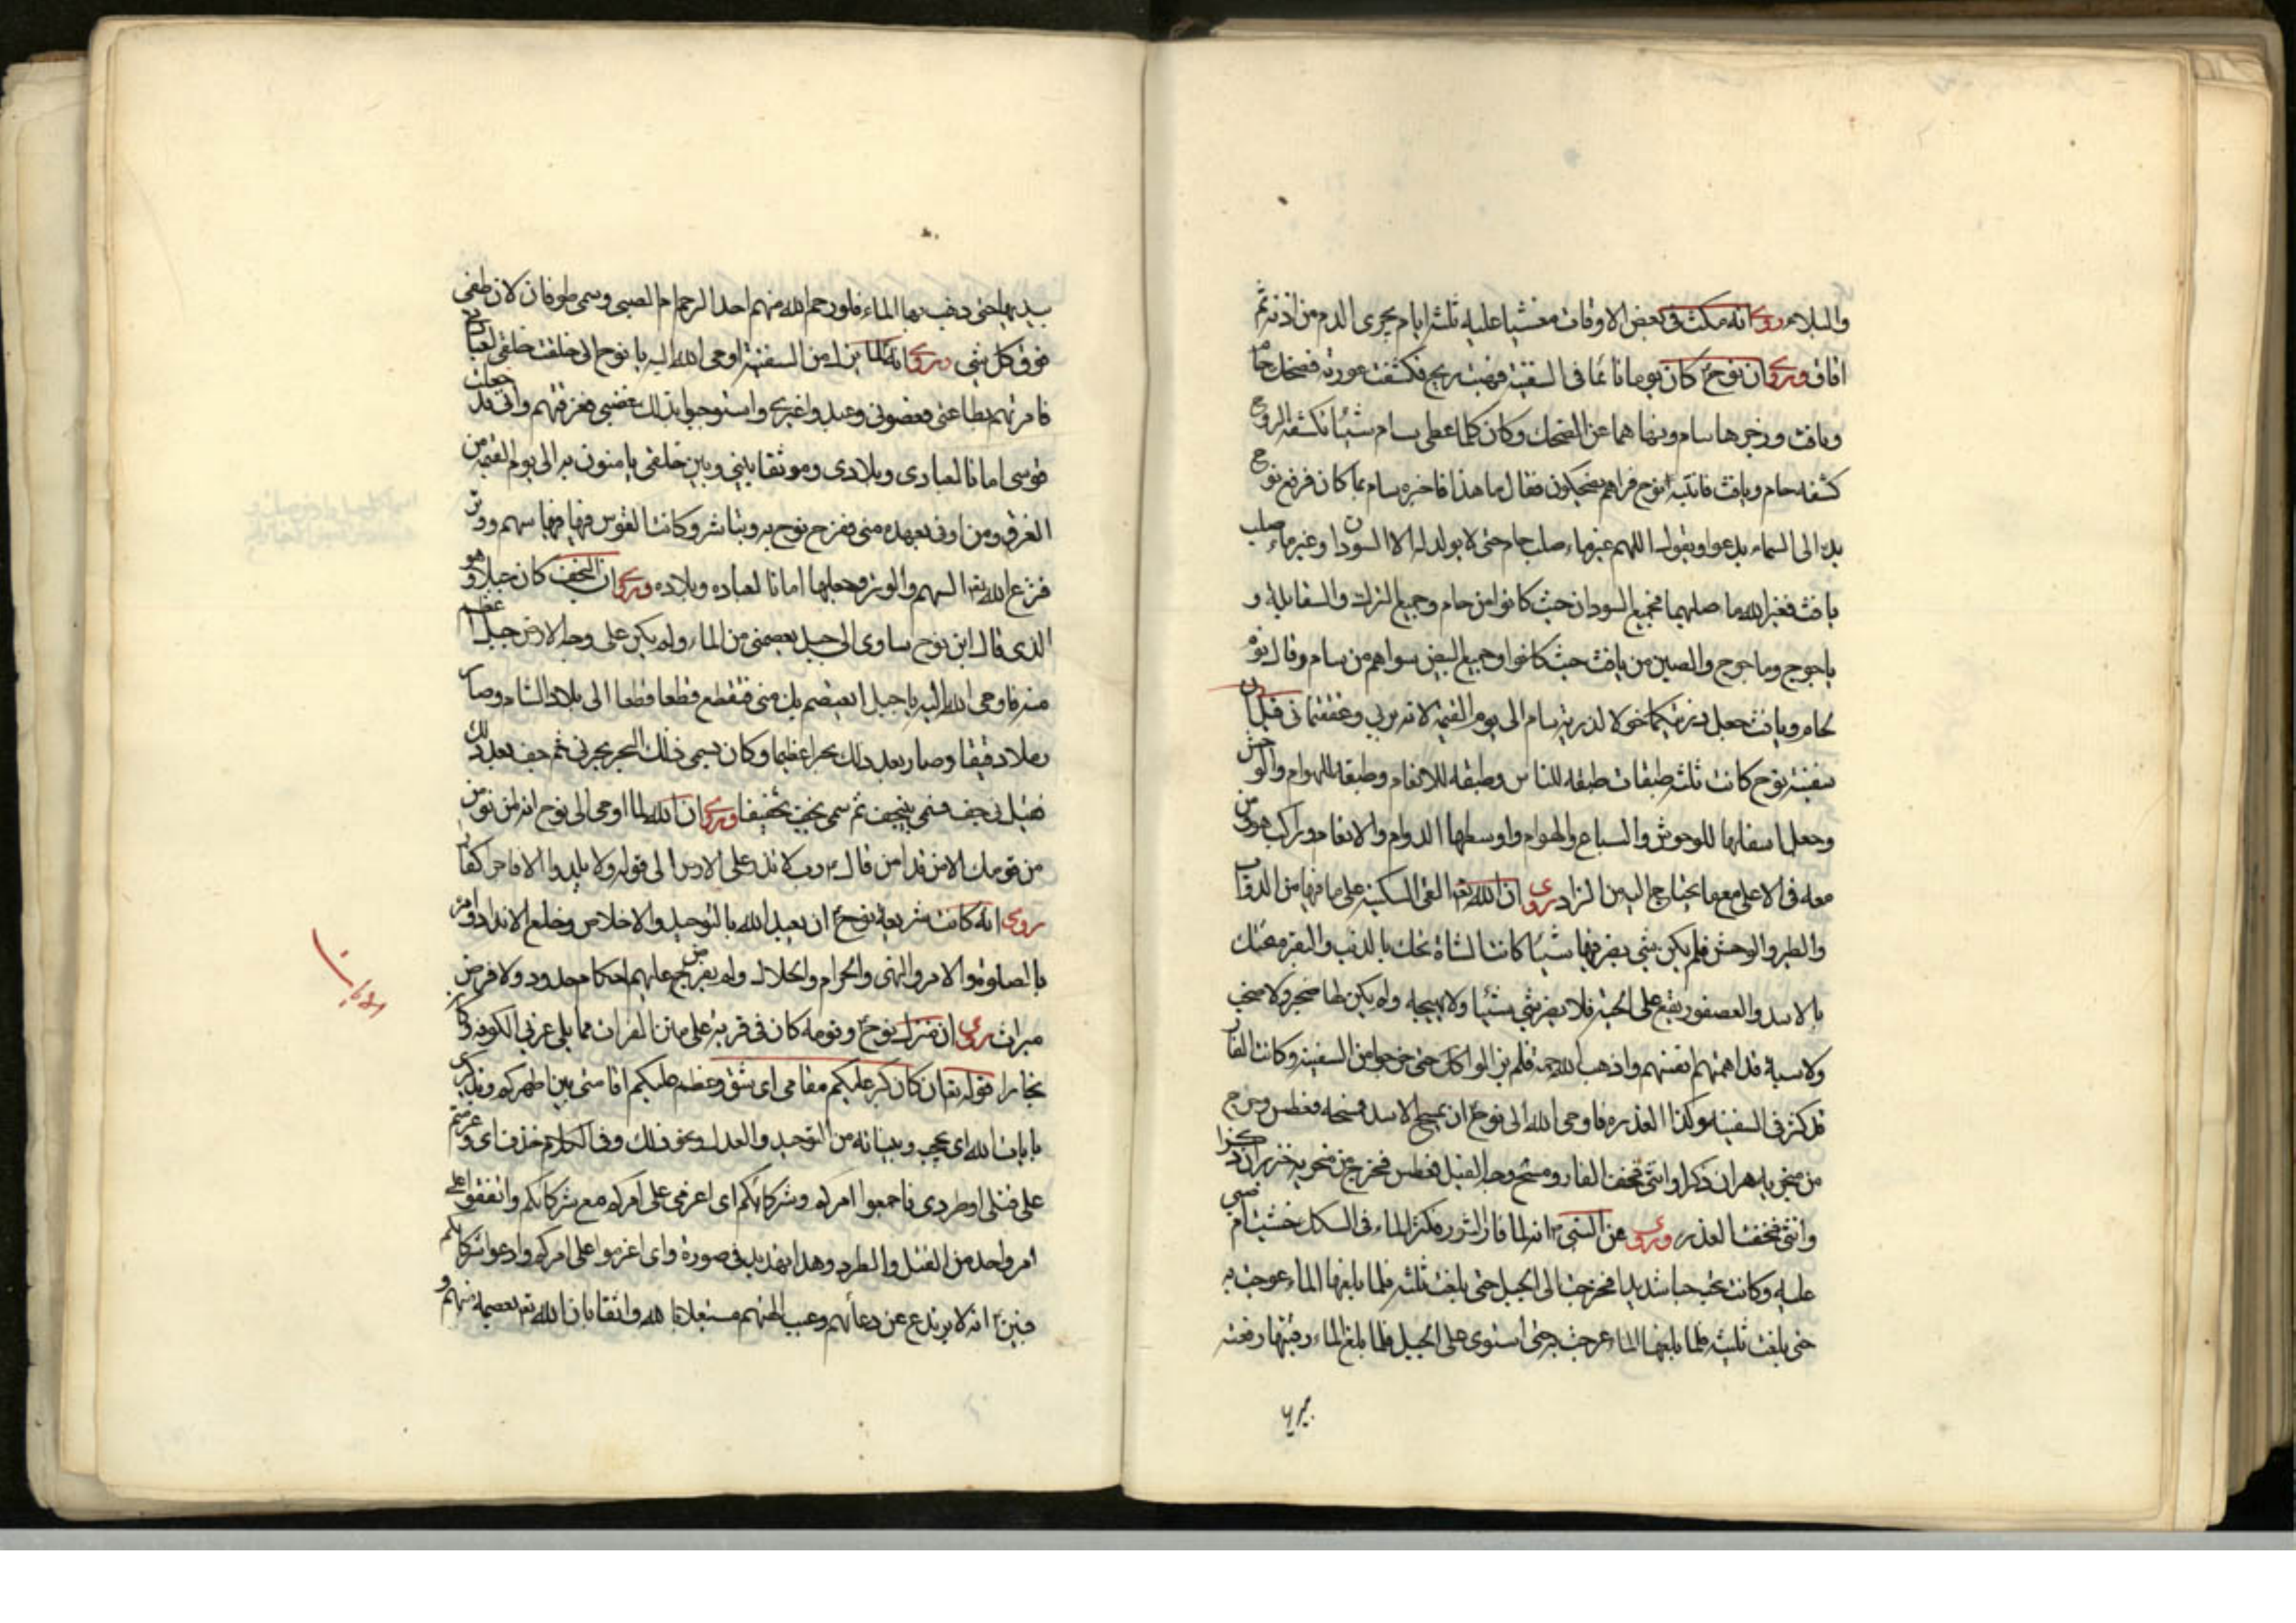 والبلاء وروى انه مكث فى بعض الاوقات مغشيا عليه ثلثه ايام يجرى الدم من اذنه ثم
افاق وروى ان نوح كان يوما نائما فى السفينة فهبت ريح فكشفت عورته فضحك حام
ويافث وزجرهما سام ونهاهما عن الضحك وكان كلما غطى سام شيئا تكشفه الريح
كشفه حام ويافث فانتبه نوح فراهم يضحكون فقال ما هذا فاخبره سام بما كان فرفع نوح
يده الى السماء يدعو ويقول اللهم غير ماء صلب حام حتى لا يولد له الا السودان وغير ماء صلب
يافث فغير الله ما صلبهما فجميع السودان حيث كانوا من حام وجميع الترك والسقالبه و
ياجوج وماجوج والصين من يافث حيث كانوا وجميع البيض سواهم من سام وقال نوح
لحام ويافث جعل ذريتكما خولا لذرية سام الى يوم القيمة لانه بر بى وعققتمانى قيل ان
سفينة نوح كانت ثلثه طبقات طبقه للناس وطبقه للانعام وطبقه للهوام والوحش
وجعل اسفلها للوحوش والسباع والهوام واوسطها الدوام والانعام وركب هو ومن
معه فى الاعلى مع ما يحتاج اليه من الزاد روى ان الله تعه القى السكينة على ما فيها من الدواب
والطير والوحش فلم يكن شى يضر فيها شيئا كانت الشاة تحك بالذئب والبقر تحتك
بالاسد والعصفور يقع على الحية فلا يضر شى شيئا ولا يهيجه ولم يكن لها ضجر ولا صخب
ولا سبة قد اهمتهم انفسهم واذهب الله حمة فلم يزالوا كل حتى خرجوا من السفينة وكانت الفار
قد كثر فى السفينه وكذا العذره فاوحى الله الى نوح ان يمسح الاسد فمسحه فعطس وخرج
من منخريه هران ذكر وانثى فخف الفار ومسح وجه الفيل فعطس فخرج من منخريه خنزيران ذكرا
وانثى فخفت العذر وروى عن النبى انه لما فار التنور فكثر الماء فى السكك خشيت ام صبى
عليه وكانت تحبه حبا شديدا فخرجت الى الجبل حتى بلغت ثلثه فلما بلغها الماء عرجت به
حتى بلغت ثلثيه فلما بلغها الماء عرجت به حتى استوى على الجبل فلما بلغ الماء رقبتها رفعته
بيديها حتى ذهب بها الماء فلو رحم الله منهم احدا لرحم ام الصبى وسمى طوفان لان طفى
فوق كل شى وروى انه لما نزل من السفينة اوحى الله اليه يا نوح انى خلقت خلقى لعبادتى
فامرتهم بطاعتى فعصونى وعبدوا غيرى واستوجبوا بذلك غضبى فغرقتهم وانى قد جعلت
قوسى امانا لعبادى وبلادى وموثقا بينى وبين خلقى يامنون به الى يوم القيمة من
الغرق ومن اوفى بعهده منى ففرح نوح به وتباشر وكانت القوس فيها سهم ووتر
فنزع الله تعه السهم والوتر وجعلها امانا لعباده وبلاده وروى ان النجف كان جبلا وهو
الذى قال ابن نوح ساوى الى جبل يعصمنى من الماء ولم يكن على وجه الارض جبل اعظم
منه فاوحى الله اليه يا جبل ايعتصم بك منى فتقطع قطعا قطعا الى بلاد الشام وصار
رملا دقيقا وصار بعد ذلك بحرا عظيما وكان يسمى ذلك البحر بحر نى ثم جف بعد ذلك
فقيل نى جف فسمى بنيجف ثم سمى نجف تخفيفا وروى ان الله لما اوحى الى نوح انه لن يؤمن
من قومك الا من قد امن قال رب لا تذر على الارض الى قوله ولا يلدوا الا فاجرا كفارا
روى انه كانت شريعة نوح ان يعبد الله بالتوحيد والاخلاص وخلع الانداد وامر
بالصلوة والامر والنهى والحرام والحلال ولم يفرض عليهم احكام حدود ولا فرض
ميراث روى ان منزل نوح وقومه كان فى قرية على متن الفرات مما يلى غربى الكوفه وكان
نجارا قوله تعه ان كان كبر عليكم مقامى اى شق وعظم عليكم اقامتى بين اظهركم وتذكيرى
بايات الله اى بحججه وبيناته من التوحيد والعدل ونحو ذلك وفى الكلام حذف اى وعزمتم
على قتلى وطردى فاجمعوا امركم وشركائكم اى اعزموا على امركم مع شركائكم واتفقوا على
امر واحد من القتل والطرد وهذا تهديد فى صورة واى اعزموا على امركم وادعوا شركائكم
فبين انه لا يرتدع عن دعائهم وعيب الهتهم مستعلانا لله واثقا بان الله تعه يعصمه منهم و
بيديها